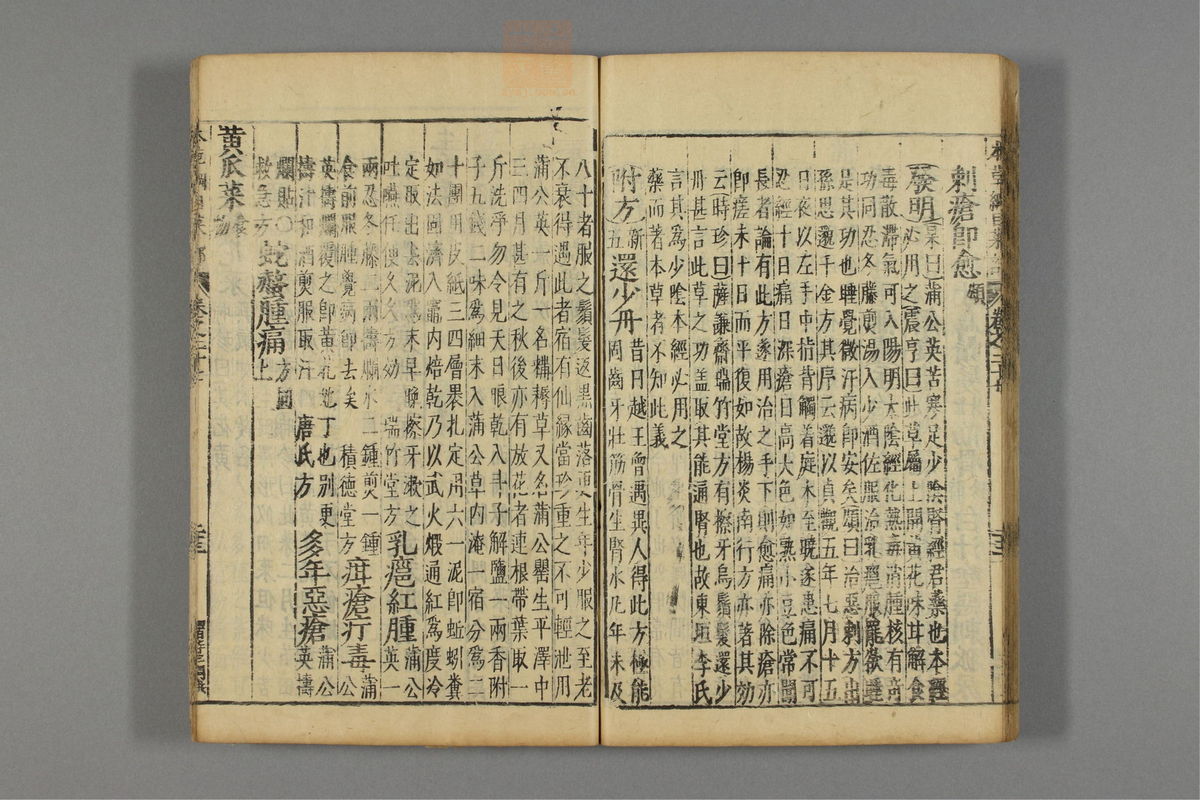 刺瘡即愈頌
發明杲曰蒲公英苦寒足少陰腎經君藥也本經
必用之震亨曰此草屬土開黃花味甘解食
毒散滯氣可入陽明太陰經化熱毒消腫核有奇
功同忍冬藤煎湯入少酒佐服治乳癰服罷欲睡
是其功也睡覺微汗病即安矣頌曰治惡刺方出
孫思邈千金方其序云邈以貞觀五年七月十五
日夜以左手中指背觸着庭木至曉遂患痛不可
忍經十日痛日深瘡日高大色如熟小豆色常聞
長者論有此方遂用治之手下則愈痛亦除瘡亦
即瘥未十日而平復如故楊炎南行方亦著其效
云時珍曰薩謙齋瑞竹堂方有擦牙烏鬚髮還少
丹甚言此草之功蓋取其能通腎也故東垣李氏
言其為少陰本經必用之
藥而著本草者不知此義
附方新五還少丹昔日越王曾遇異人得此方極能
固齒牙壯筋骨生腎水凡年未及
八十者服之鬚髮返黑齒落更生年少服之至老
不衰得遇此者宿有仙緣當珍重之不可輕泄用
蒲公英一斤一名耩耨草又名蒲公罌生平澤中
三四月甚有之秋後亦有放花者連根帶葉取一
斤洗淨勿令見天日晾乾入斗子解鹽一兩香附
子五錢二味為細末入蒲公草內淹一宿分為二
十團用皮紙三四層裹扎定用六一泥即蚯蚓糞
如法固濟入竈內焙乾乃以武火煅通紅為度冷
定取出去泥為末早晚擦牙漱之
吐嚥任便久久方效瑞竹堂方乳癰紅腫蒲公英一
兩忍冬藤二兩擣爛水二鍾煎一鍾
食前服睡覺病即去矣積德堂方疳瘡疔毒蒲公
英擣爛覆之即黃花地丁也別更
擣汁和酒煎服取汗唐氏方多年惡瘡蒲公英擣
爛貼○救急方蛇螫腫痛方同上
黃瓜菜食物